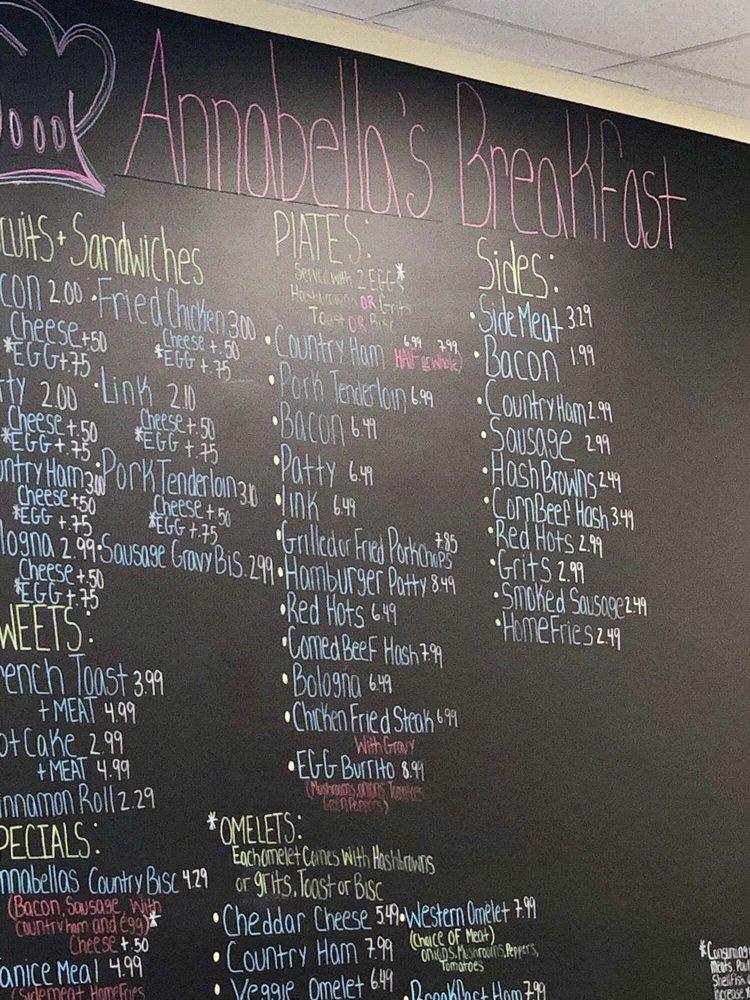 Annabella's BreakFast
cuits + Sandwiches
con 2.00
Cheese +.50
*EGG +.75
tty 2.00
Cheese +.50
*EGG +.75
untry Ham 3.00
Cheese +.50
*EGG +.75
logna 2.99
Cheese +.50
*EGG +.75
• Fried Chicken 3.00
Cheese +.50
*EGG +.75
• Link 2.10
Cheese +.50
*EGG +.75
• Pork Tenderloin 3.10
Cheese +.50
*EGG +.75
• Sausage Gravy Bis. 2.99
WEETS:
ench Toast 3.99
+ MEAT 4.99
ot Cake 2.99
+ MEAT 4.99
innamon Roll 2.29
PECIALS:
nnabellas Country Bisc 4.29
(Bacon, Sausage, With
country ham and egg)*
Cheese +.50
anice Meal 4.99
(Sidemeat, HomeFries
PLATES:
Served with 2 EGGS*
Hashbrowns OR Grits
Toast OR Bisc
• Country Ham 6.99 7.99
(HALF or Whole)
• Pork Tenderloin 6.99
• Bacon 6.49
• Patty 6.49
• Link 6.49
• Grilled or Fried Porkchops 7.85
• Hamburger Patty 8.49
• Red Hots 6.49
• Corned Beef Hash 7.99
• Bologna 6.49
• Chicken Fried Steak 6.99
With Gravy
• EGG Burrito 8.99
(Mushrooms, onions, Tomatoes
Green Peppers)
Sides:
• Side Meat 3.29
• Bacon 1.99
• Country Ham 2.99
• Sausage 2.99
• Hash Browns 2.49
• Corn Beef Hash 3.49
• Red Hots 2.99
• Grits 2.99
• Smoked Sausage 2.49
• Home Fries 2.49
*OMELETS:
Each omelet Comes With Hashbrowns
or grits, Toast or Bisc
• Cheddar Cheese 5.49
• Country Ham 7.99
• Veggie Omelet 6.49
• Western Omelet 7.99
(Choice of Meat)
onions, Mushrooms, Peppers,
Tomatoes
BreakFast Ham 7.99
*Consuming
meats, Poul
Shellfish,
increase